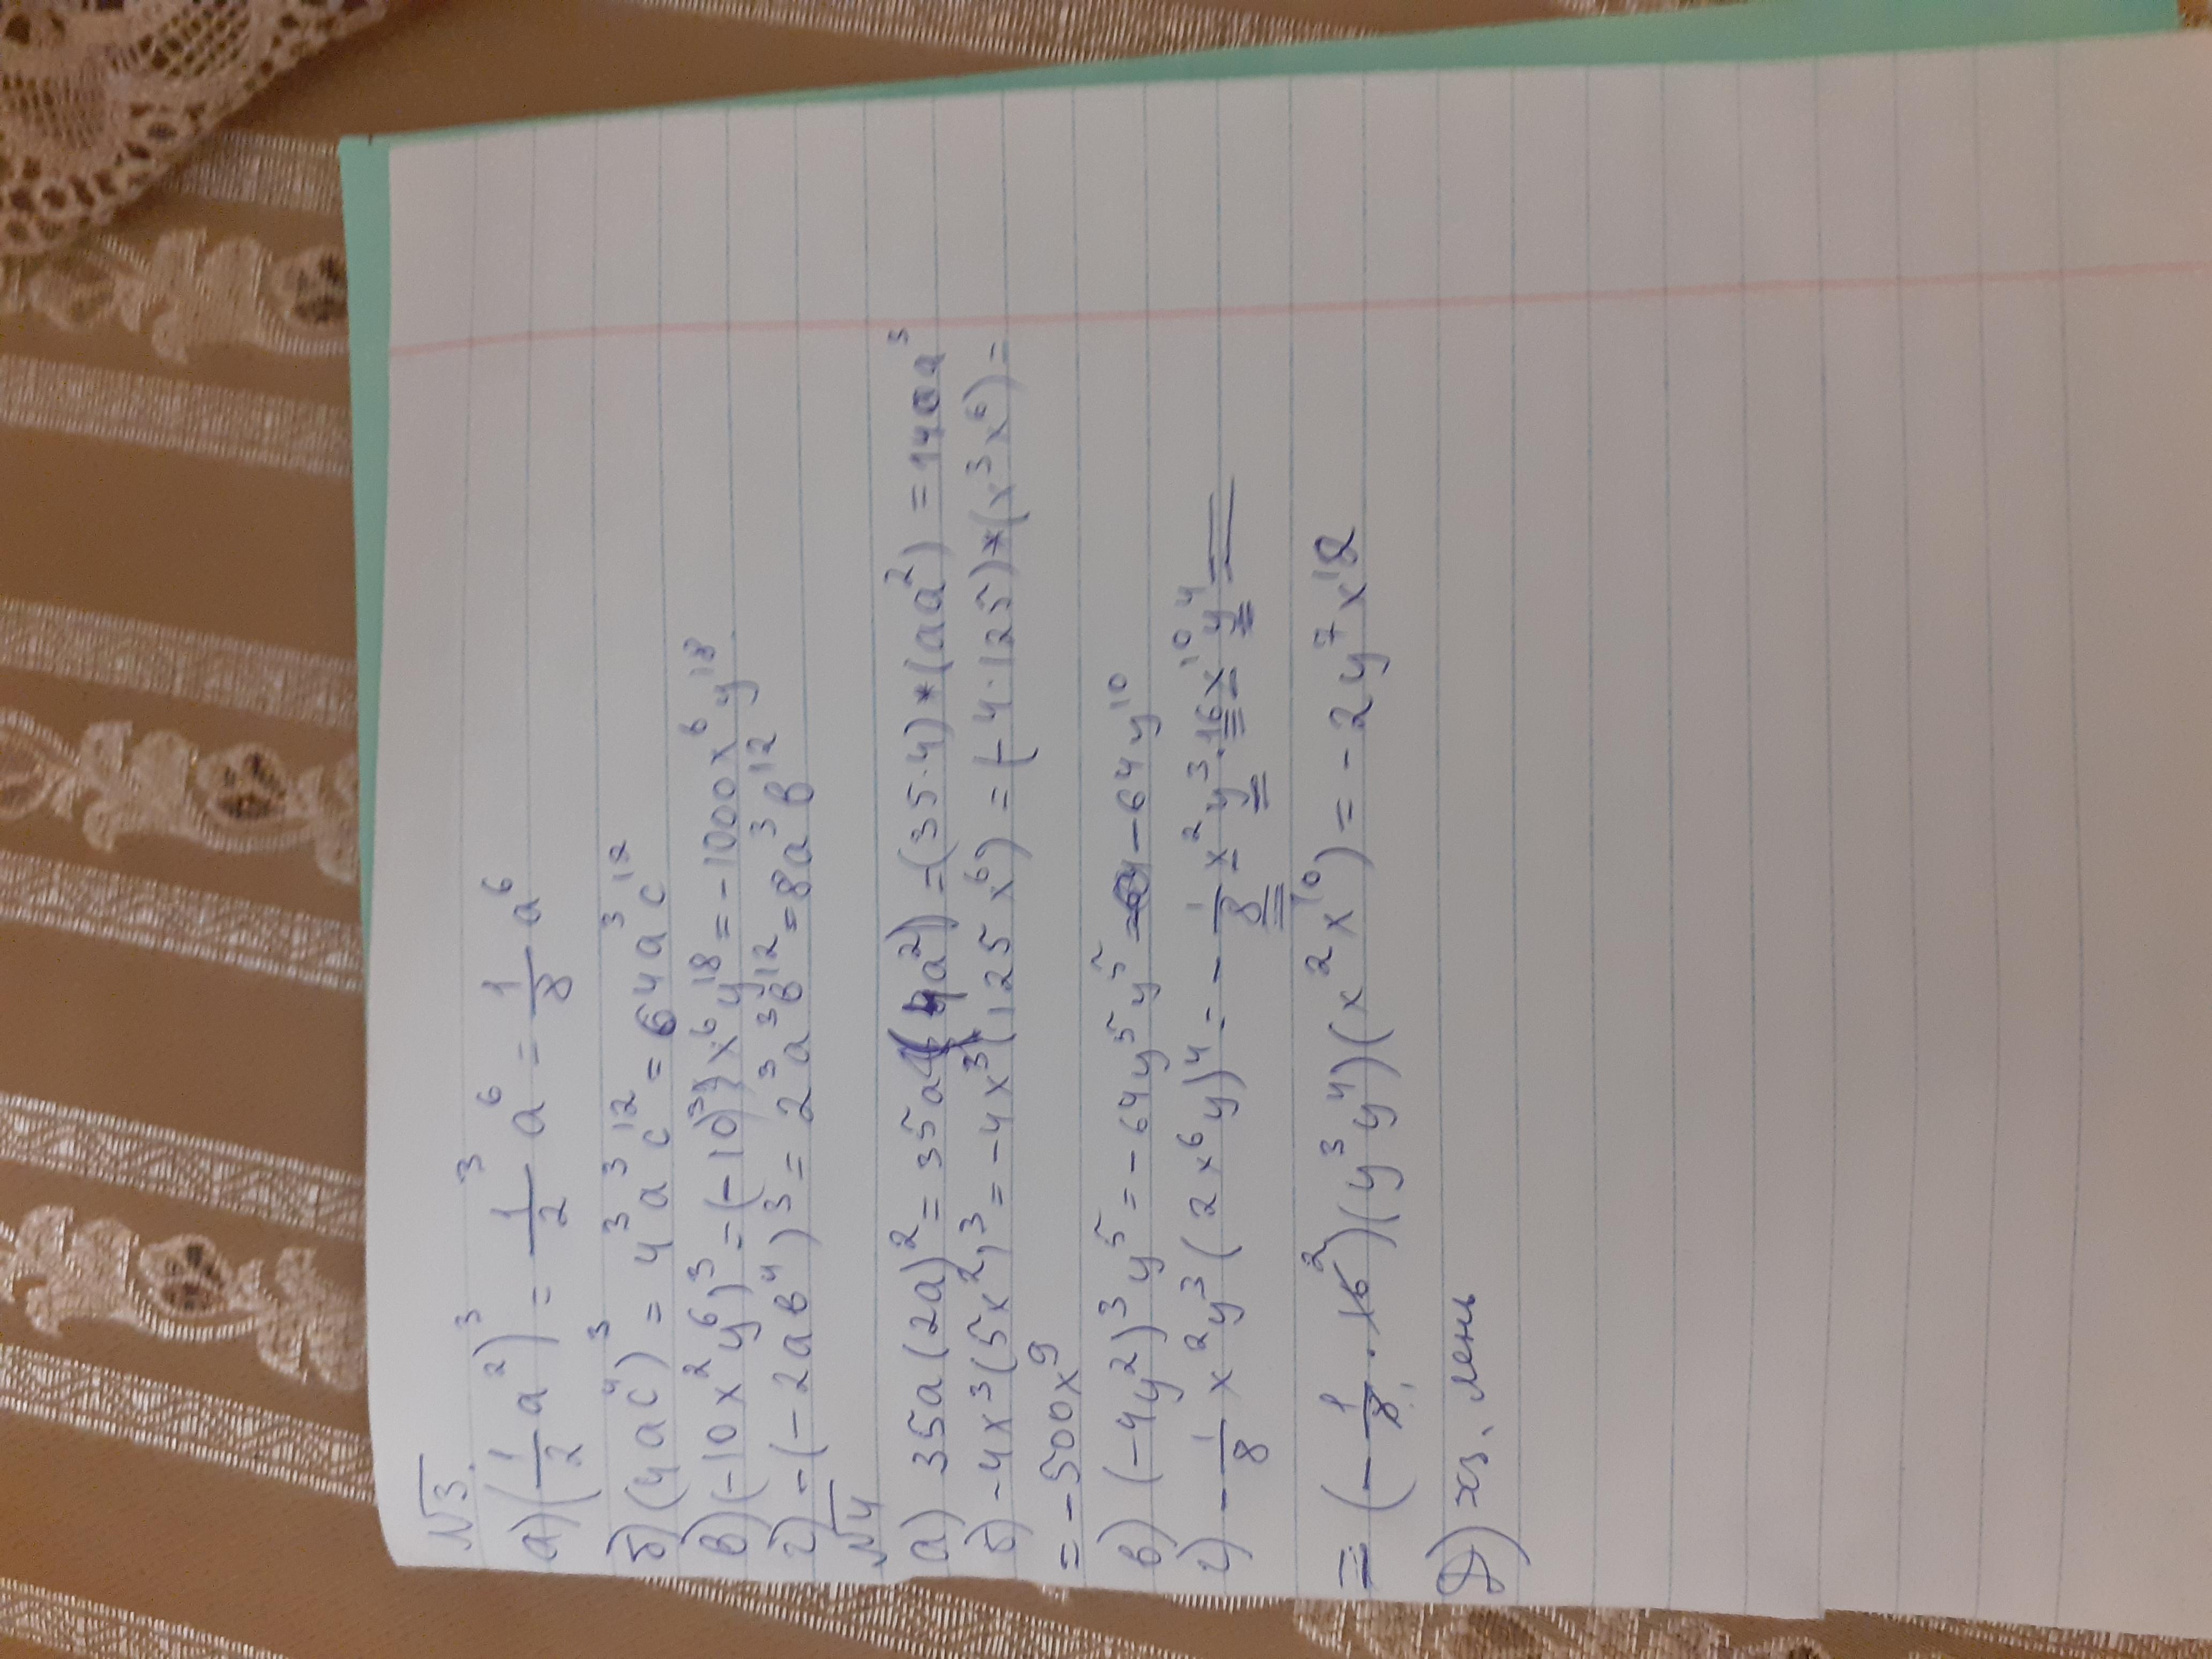 №3.
а) (1/2 a²)³ = 1/2³ a⁶ = 1/8 a⁶
б) (4ac⁴)³ = 4³a³c¹² = 64a³c¹²
в) (-10x²y⁶)³ = (-10³)x⁶y¹⁸ = -1000x⁶y¹⁸
г) -(-2ab⁴)³ = 2³a³b¹² = 8a³b¹²
№4
а) 35a(2a)² = 35a(4a²) = (35·4)*(aa²) = 140a³
б) -4x³(5x²)³ = -4x³(125x⁶) = (-4·125)*(x³x⁶) =
= -500x⁹
в) (-4y²)³y⁵ = -64y⁵y⁵ = -64y¹⁰
г) -1/8 x²y³(2x⁶y)⁴ = -1/8 x²y³·16x¹⁰y⁴ =
= (-1/8·16²)(y³y⁴)(x²x¹⁰) = -2y⁷x¹²
д) хз, лень